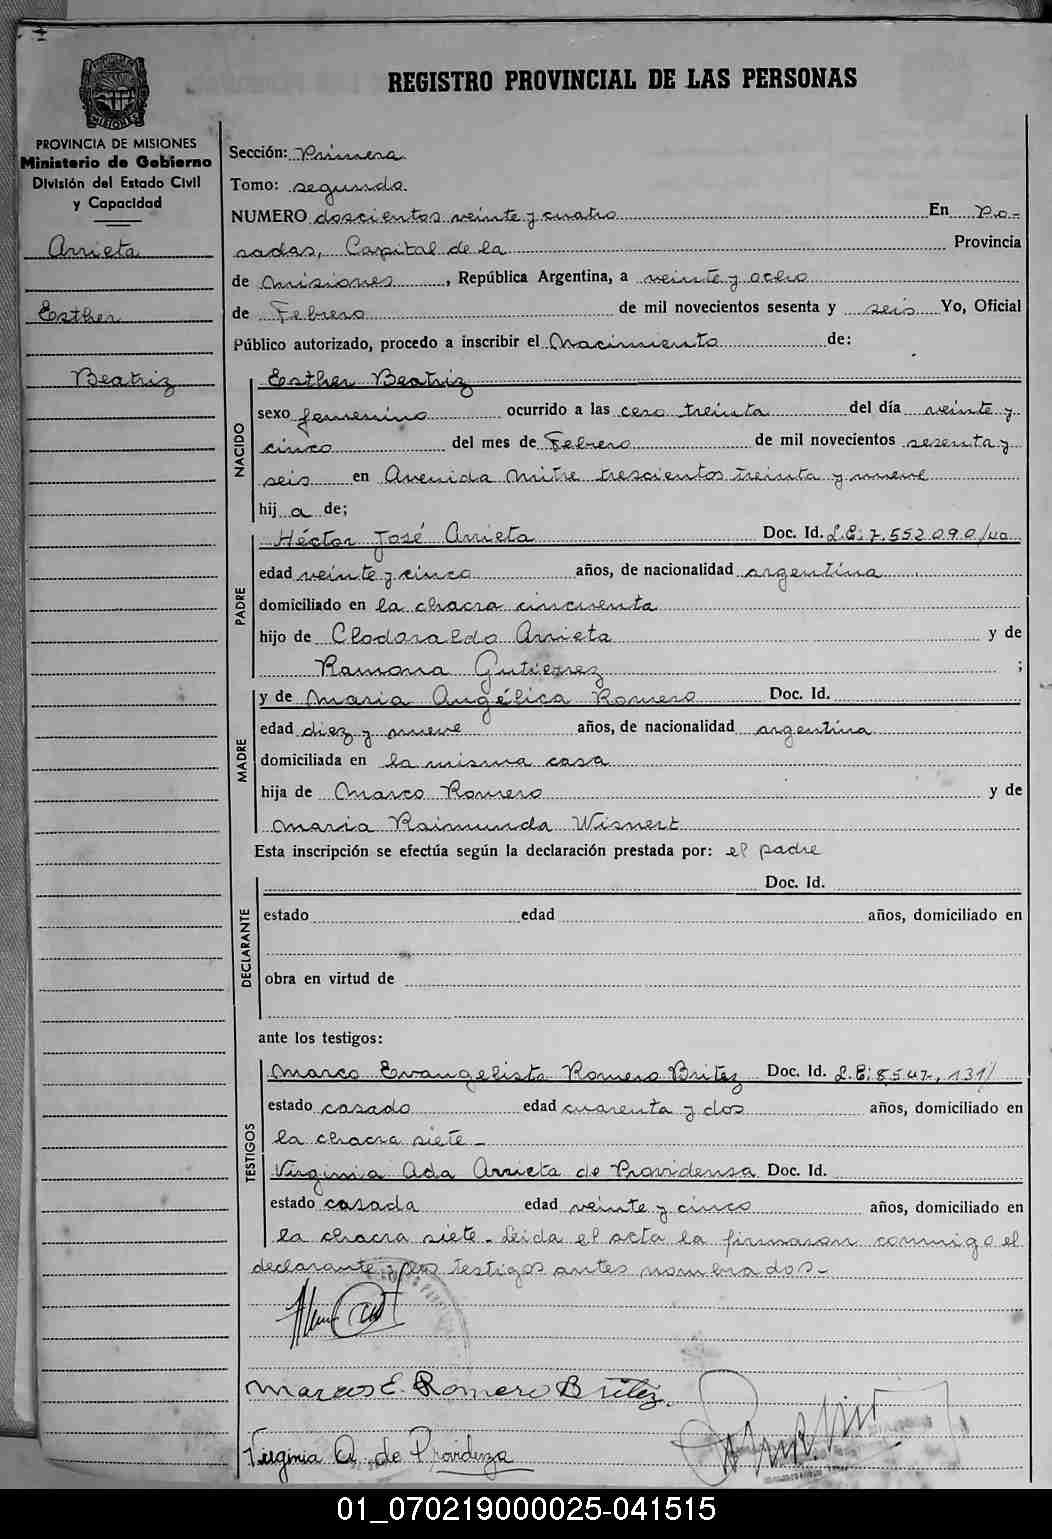 REGISTRO PROVINCIAL DE LAS PERSONAS
MISIONES
PROVINCIA DE MISIONES
Ministerio de Gobierno
División del Estado Civil
y Capacidad
Arrieta
Esther
Beatriz
Sección: Primera
Tomo: segundo
NUMERO doscientos veinte y cuatro En Po-
sadas, Capital de la Provincia
de Misiones, República Argentina, a veinte y ocho
de Febrero de mil novecientos sesenta y seis Yo, Oficial
Público autorizado, procedo a inscribir el Nacimiento de:
NACIDO
Esther Beatriz
sexo femenino ocurrido a las cero treinta del día veinte y
cinco del mes de Febrero de mil novecientos sesenta y
seis en Avenida Mitre trescientos treinta y nueve
hij a de;
PADRE
Héctor José Arrieta Doc. Id. L.E: 7.552.090/
edad veinte y cinco años, de nacionalidad argentina
domiciliado en la chacra cincuenta
hijo de Clodoraldo Arrieta y de
Ramona Gutierrez ;
MADRE
y de Maria Angélica Romero Doc. Id.
edad diez y nueve años, de nacionalidad argentina
domiciliada en la misma casa
hija de Marco Romero y de
Maria Raimunda Wisnert
Esta inscripción se efectúa según la declaración prestada por: el padre
DECLARANTE
Doc. Id.
estado edad años, domiciliado en
obra en virtud de
ante los testigos:
TESTIGOS
Marco Evangelista Romero Britez Doc. Id. L.E:
estado casado edad cuarenta y dos años, domiciliado en
la chacra siete -
Virginia Ada Arrieta de Providensa Doc. Id.
estado casada edad veinte y cinco años, domiciliado en
la chacra siete - Leida el acta la firmaron conmigo el
declarante y los testigos antes nombrados -
Marcos E. Romero Britez.
Virginia A. de Providenza
01_070219000025-041515